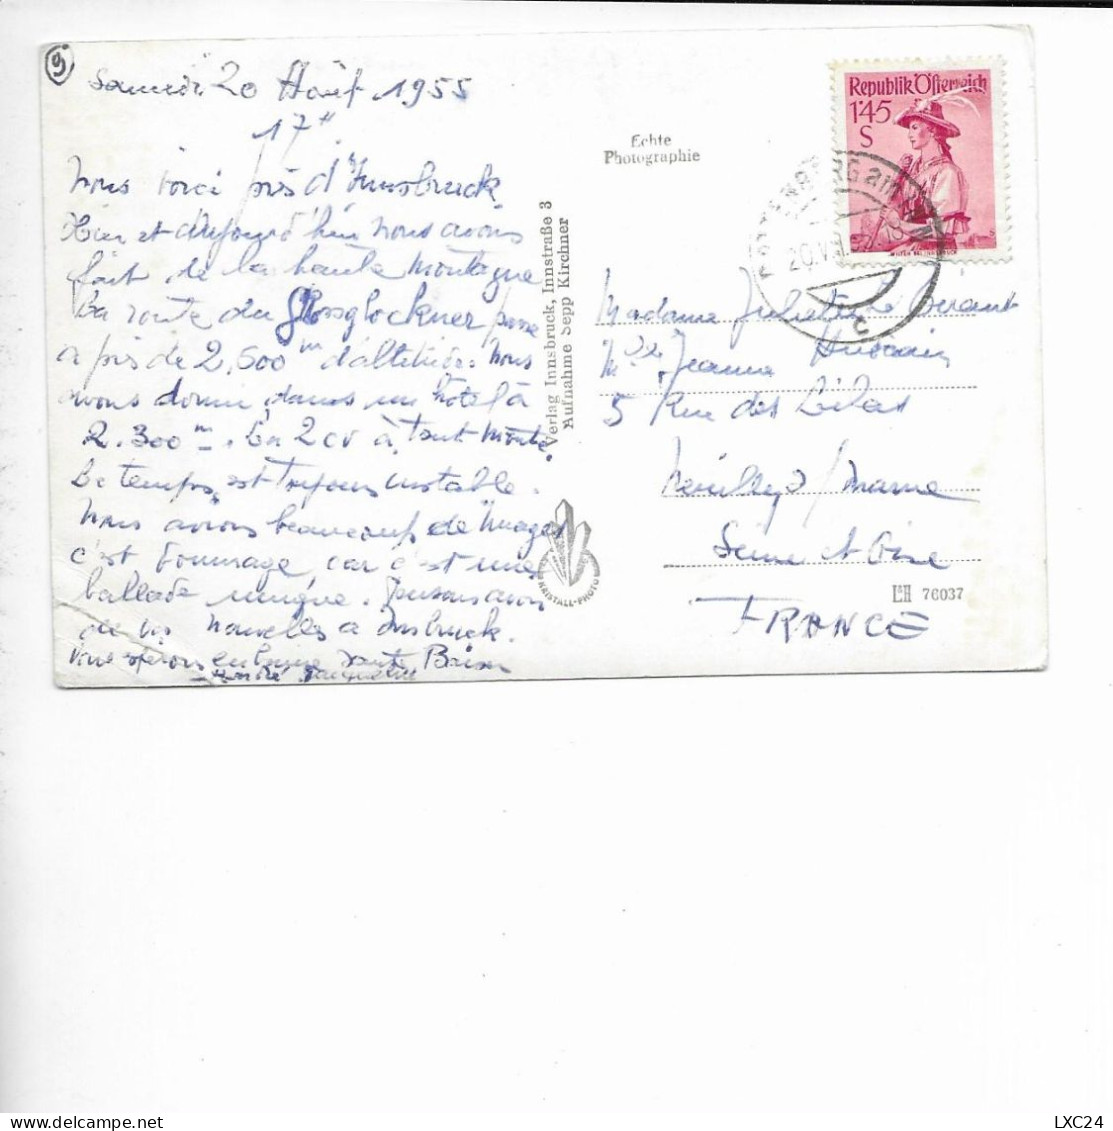 9
Samedi 20 Août 1955
17 H
Nous voici près d'Innsbruck.
Hier et Aujourd'hui nous avons
fait de la haute montagne
La route du Grossglockner passe
à près de 2.600 m d'altitude. Nous
avons dormi dans un hôtel à
2.300 m. La 2 CV à tout monté.
Le temps est toujours instable.
Nous avons beaucoup de nuages
c'est dommage, car c'est une
ballade unique. Pensons avoir
de vos nouvelles à Insbruck.
Vous espérons en bonne santé Baisers
André
Verlag Innsbruck, Innstraße 3
Aufnahme Sepp Kirchner
KRISTALL-PHOTO
Echte
Photographie
Republik Österreich
1'45
S
ROTTENBERG am INN
20.VIII
c
Madame Juliette
Mlle Jeanne
5 Rue des Lilas
Neuilly s/ Marne
Seine et Oise
FRANCE
L&H 76037
LXC24